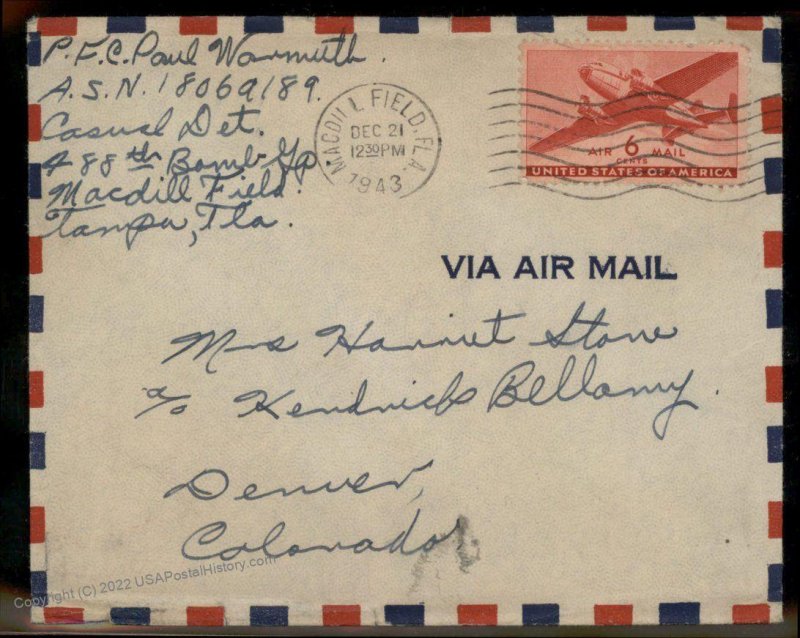 P.F.C. Paul Warmuth
A.S.N. 18069189.
Casual Det.
488th Bomb Gp
Macdill Field.
Tampa, Fla.
MACDILL FIELD, FLA.
DEC 21
12 30 PM
1943
AIR 6 MAIL
CENTS
UNITED STATES OF AMERICA
VIA AIR MAIL
Mrs Harriet Stone
c/o Kendrick Bellamy.
Denver,
Colorado.
Copyright (C) 2022 USAPostalHistory.com